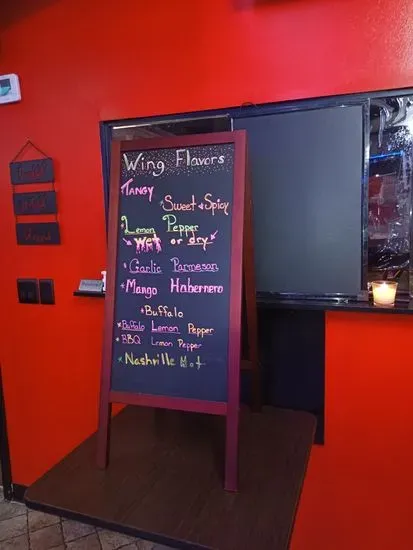 Wing Flavors
Tangy
*Sweet & Spicy
*Lemon Pepper
wet or dry
*Garlic Parmesan
*Mango Habernero
*Buffalo
*Buffalo Lemon Pepper
*BBQ Lemon Pepper
*Nashville Hot